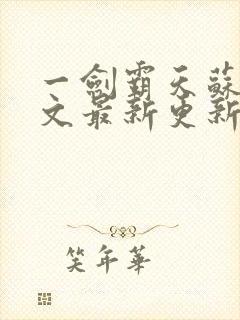 一劍霸天蘇
文最新更新
笑年華